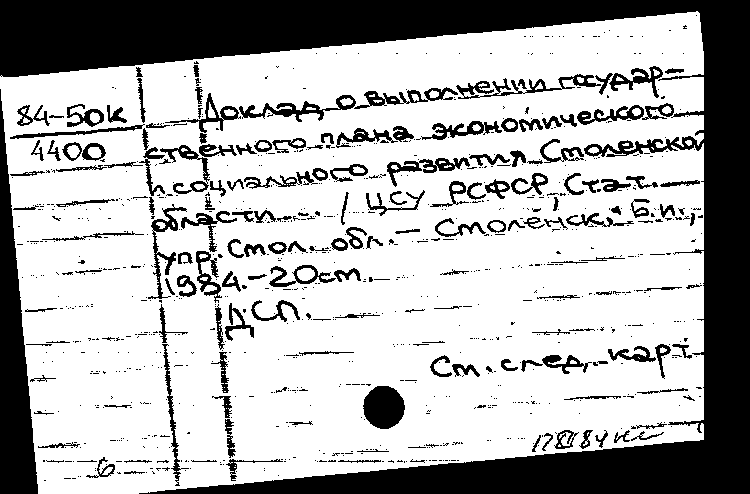 84-50к
4400
Доклад о выполнении государ-
ственного плана экономического
и социального развития Смоленской
области ... / ЦСУ РСФСР, Стат.
упр. Смол. обл. - Смоленск, Б.и.,
1984. - 20 см.
ДСП.
См. след. карт.
6